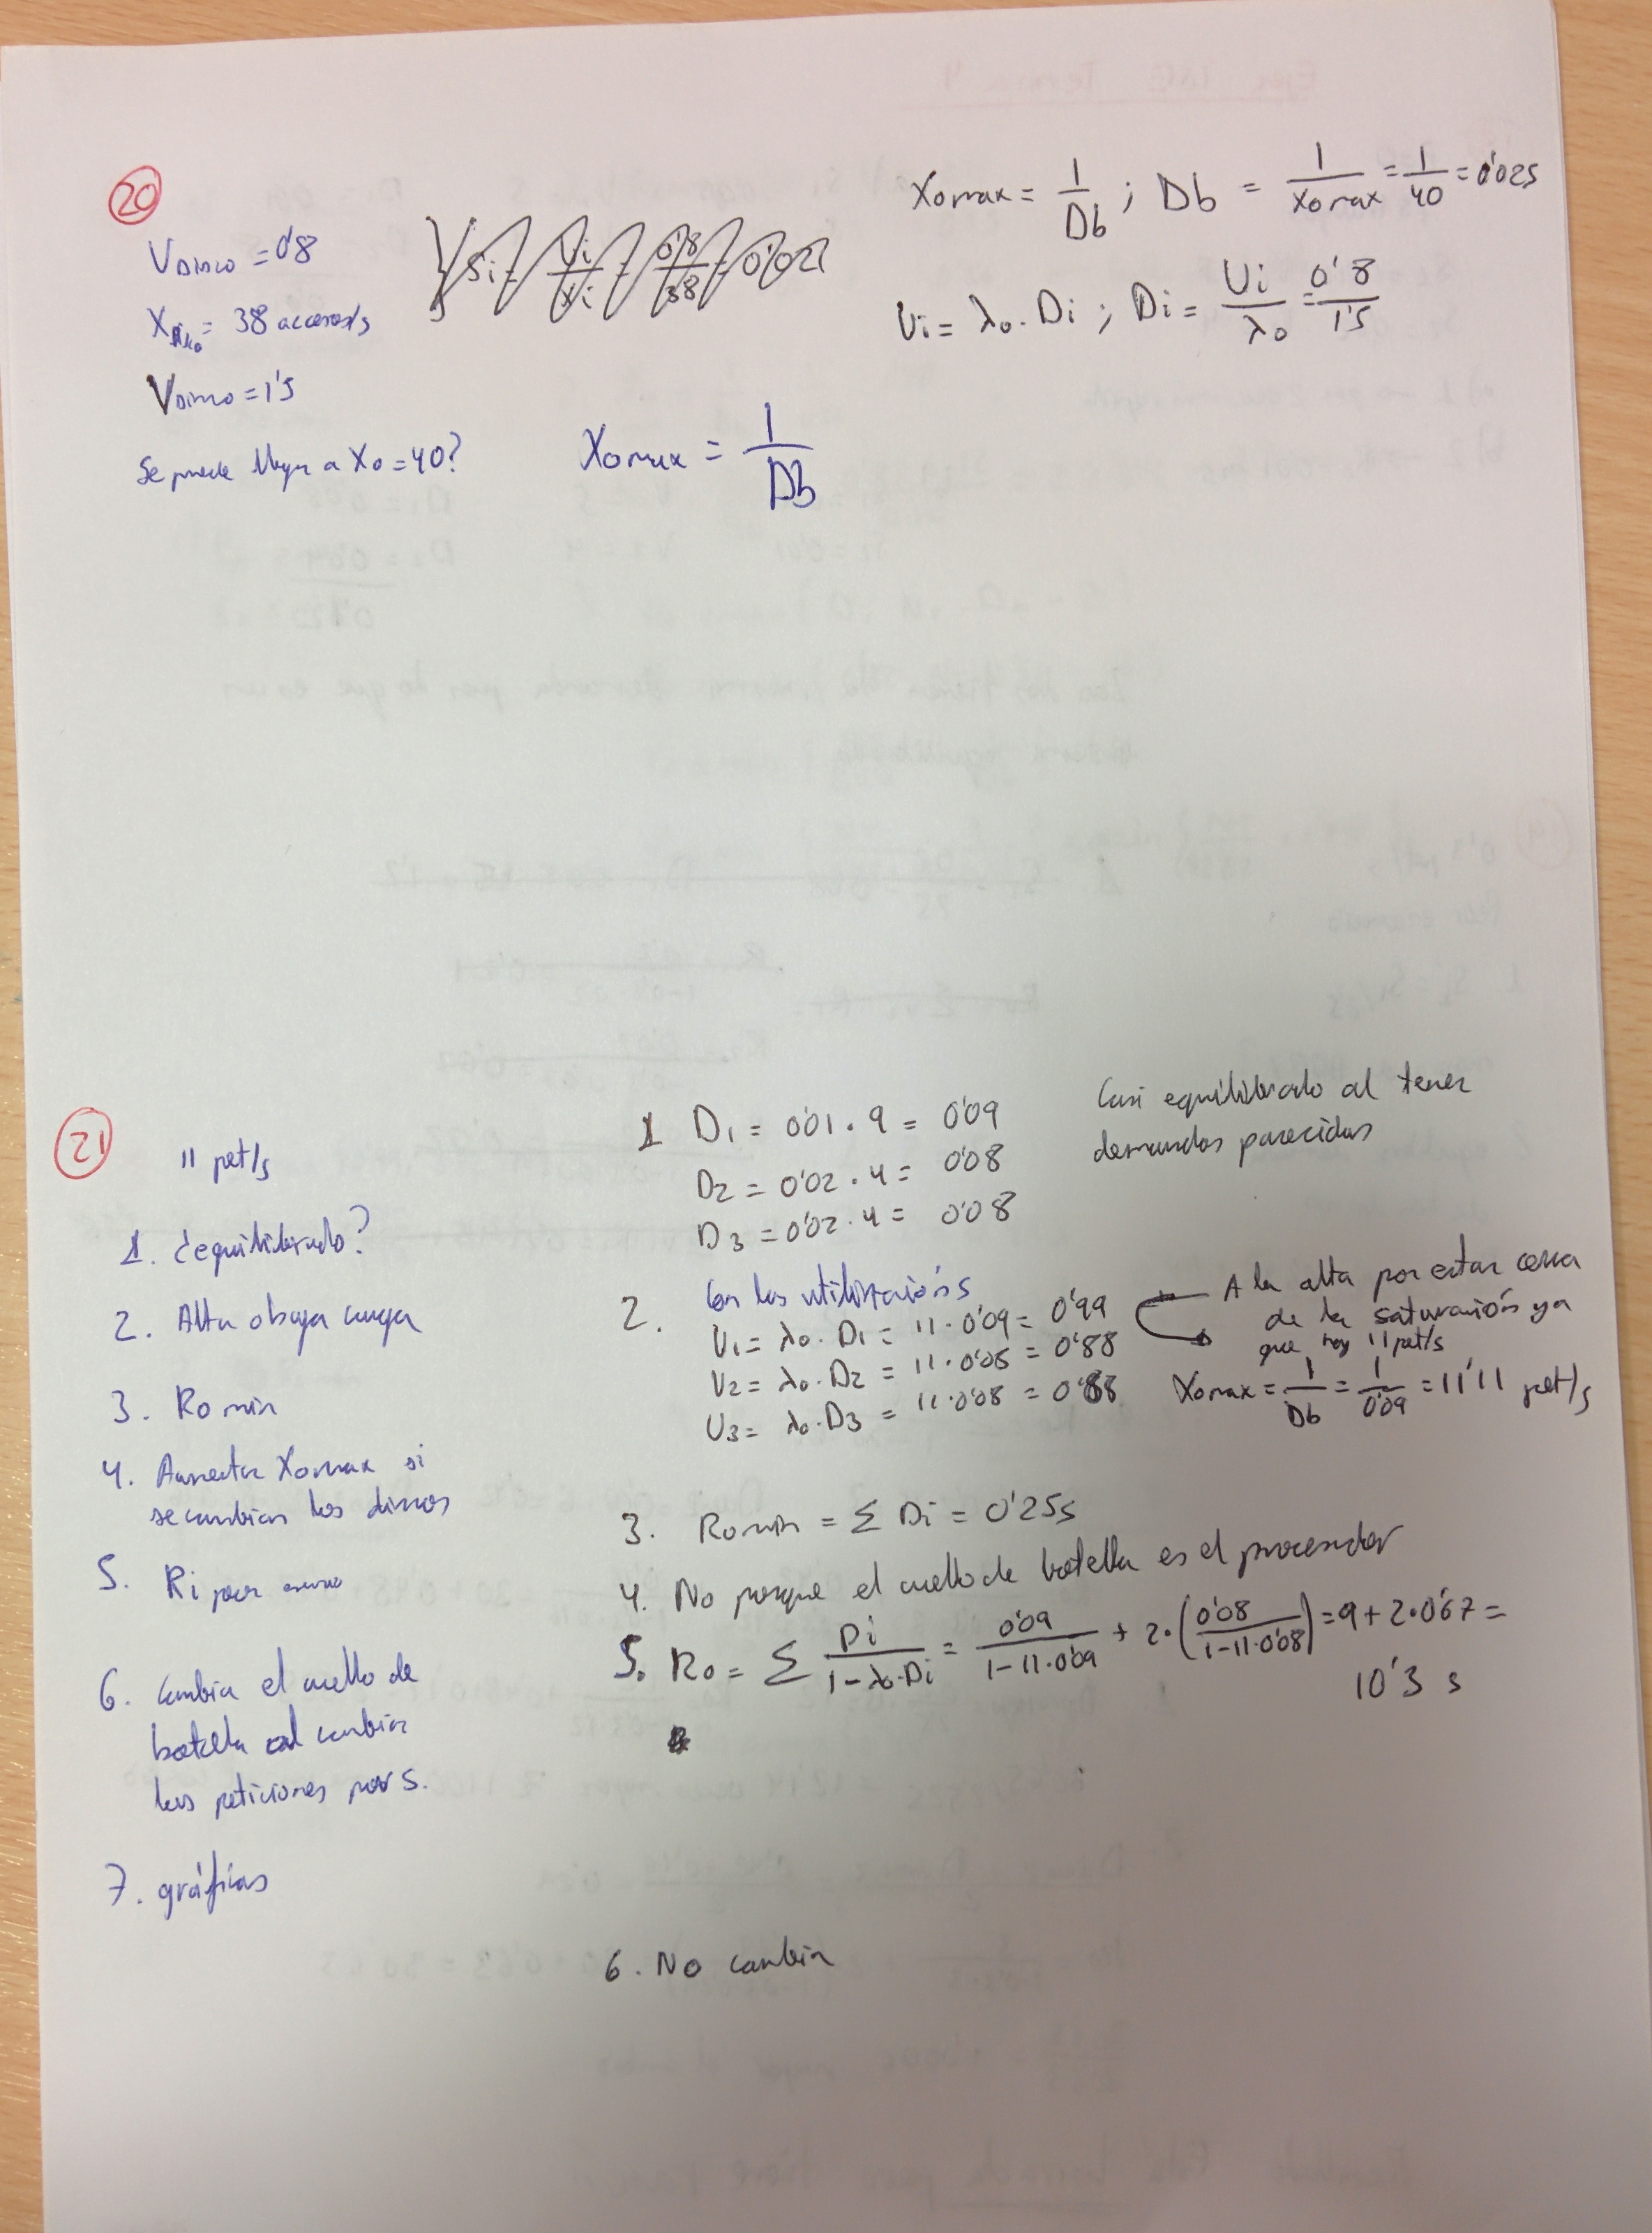 20
V Disco = 0'8
X Disco = 38 accesos/s
V Disco = 1'5
Se puede llegar a Xo = 40?
Si = Ui/Xi = 0'8/38 = 0'021
Xomax = 1/Db
Xomax = 1/Db ; Db = 1/Xomax = 1/40 = 0'025
Ui = λo · Di ; Di = Ui/λo = 0'8/1'5
21
11 pet/s
1. ¿equilibrado?
2. Alta o baja carga
3. Ro min
4. Aumentar Xomax si
se cambian los discos
5. Ri por
6. Cambia el cuello de
botella al cambiar
las peticiones por s.
7. gráficas
1 D1 = 0'01 · 9 = 0'09
D2 = 0'02 · 4 = 0'08
D3 = 0'02 · 4 = 0'08
Casi equilibrado al tener
demandas parecidas
2. Con las utilizaciónes
U1 = λo · D1 = 11 · 0'09 = 0'99
U2 = λo · D2 = 11 · 0'08 = 0'88
U3 = λo · D3 = 11 · 0'08 = 0'88
A la alta por estar cerca
de la saturación ya
que hay 11 pet/s
Xomax = 1/Db = 1/0'09 = 11'11 pet/s
3. Romin = Σ Di = 0'25s
4. No porque el cuello de botella es el procesador
5. Ro = Σ Di/(1-λo·Di) = 0'09/(1-11·0'09) + 2·(0'08/(1-11·0'08)) = 9 + 2·0'67 =
10'3 s
6. No cambia